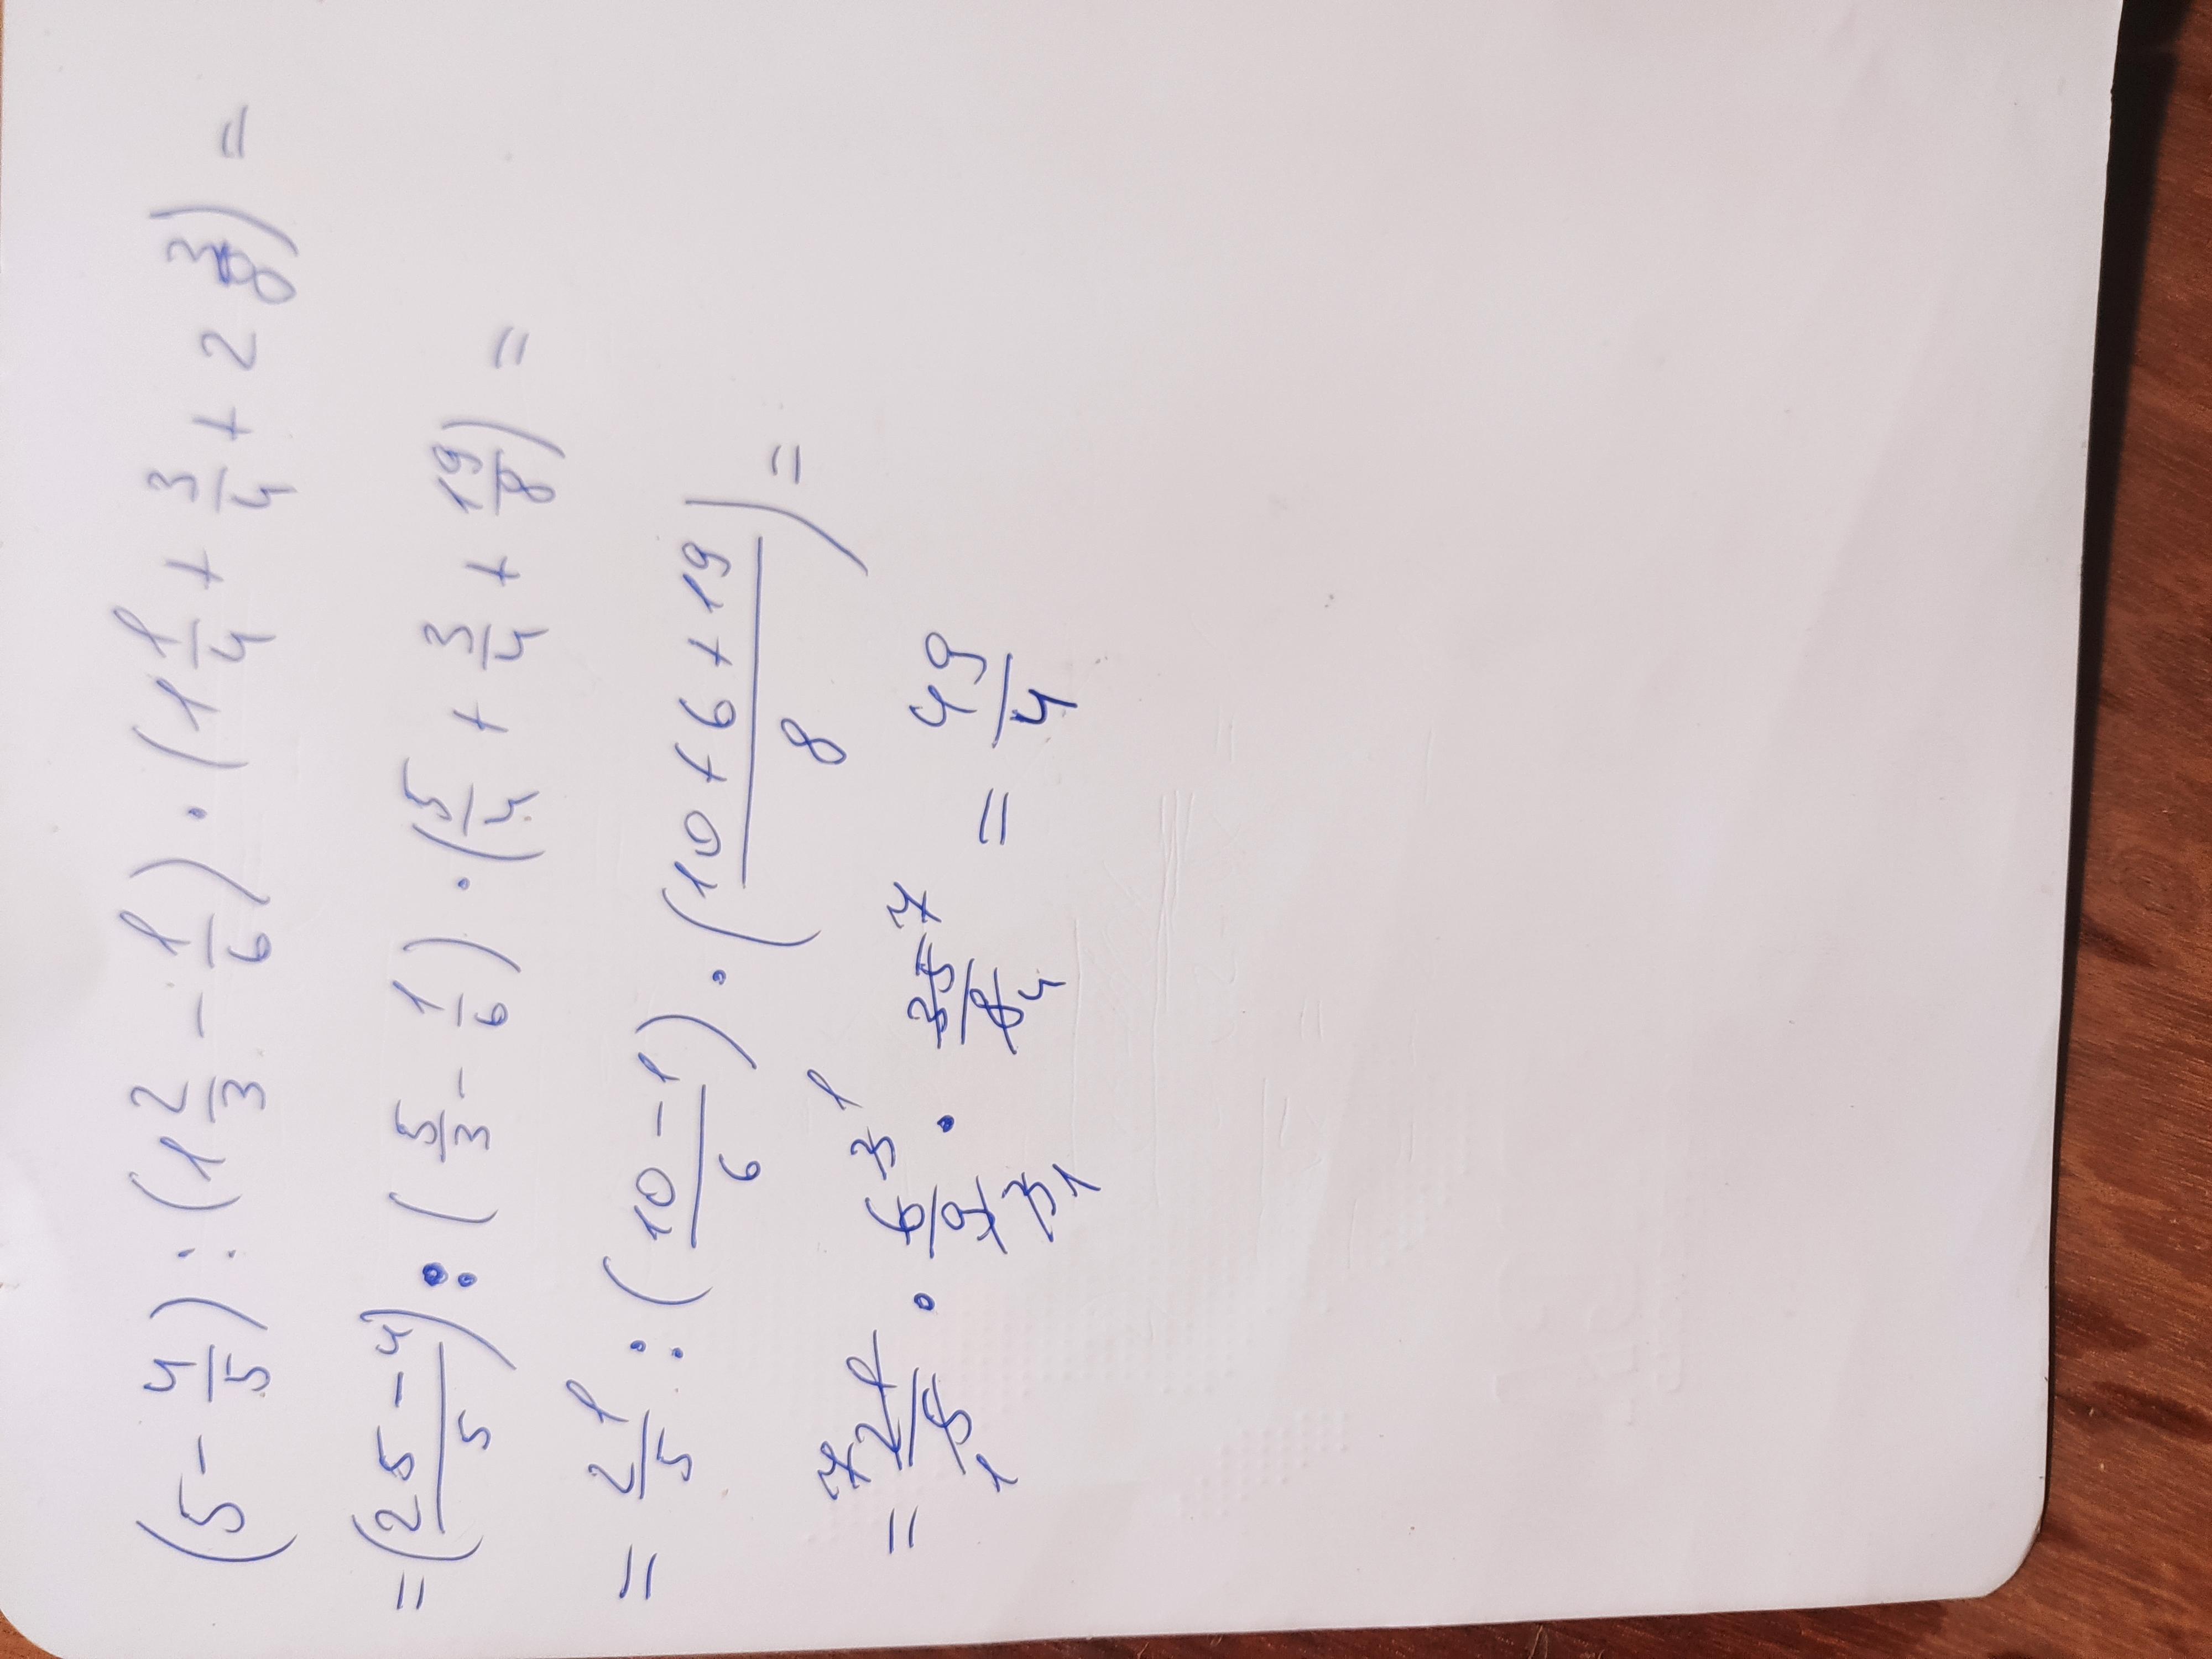 (5 - 4/5) : (1 2/3 - 1/6) · (1 1/4 + 3/4 + 2 3/8) =
= (25 - 4/5) : (5/3 - 1/6) · (5/4 + 3/4 + 19/8) =
= 21/5 : (10 - 1/6) · (10 + 6 + 19/8) =
= 7 21/5 1 · 6 3 1/9 3 1 · 35 7/8 4 = 49/4